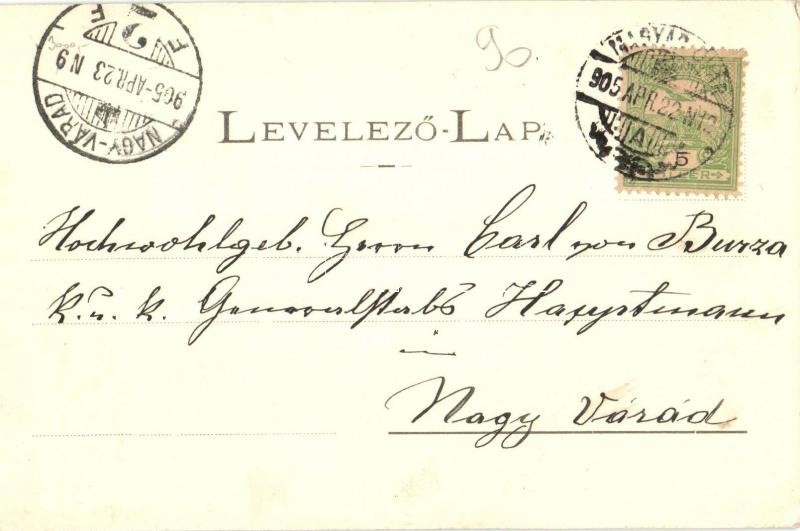 90
905 APR. 23 N 9
NAGY-VÁRAD
905 APR. 22. N
5
LEVELEZŐ-LAP.
Hochwohlgeb. Herrn Carl von Burza
k. u. k. Generalstabs Hauptmann
in
Nagy Várád